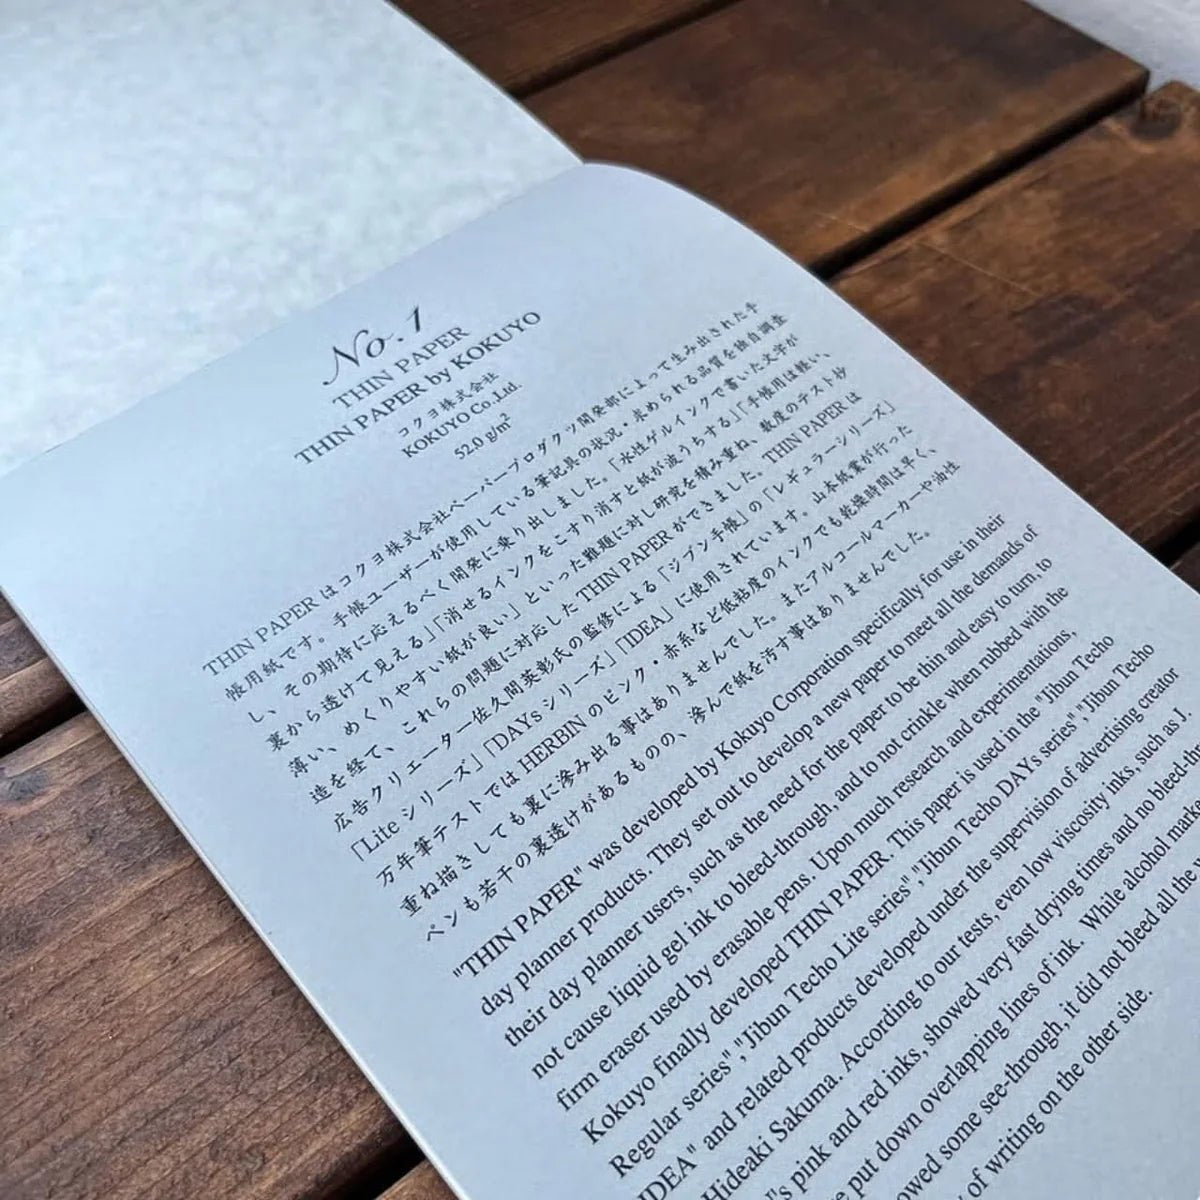 No. 1
THIN PAPER
THIN PAPER by KOKUYO
コクヨ株式会社
KOKUYO Co.,Ltd.
52.0 g/m²
THIN PAPER はコクヨ株式会社ペーパープロダクツ開発部によって生み出された手
帳用紙です。手帳ユーザーが使用している筆記具の状況・求められる品質を独自調査
し、その期待に応えるべく開発に乗り出しました。「水性ゲルインクで書いた文字が
裏から透けて見える」「消せるインクをこすり消すと紙が波うちする」「手帳用は軽い、
薄い、めくりやすい紙が良い」といった難題に対し研究を積み重ね、数度のテスト抄
造を経て、これらの問題に対応した THIN PAPER ができました。THIN PAPER は
広告クリエーター佐久間英彰氏の監修による「ジブン手帳」の「レギュラーシリーズ」
「Lite シリーズ」「DAYs シリーズ」「IDEA」に使用されています。山本紙業が行った
万年筆テストでは HERBIN のピンク・赤系など低粘度のインクでも乾燥時間は早く、
重ね描きしても裏に滲み出る事はありませんでした。またアルコールマーカーや油性
ペンも若干の裏透けがあるものの、滲んで紙を汚す事はありませんでした。
"THIN PAPER" was developed by Kokuyo Corporation specifically for use in their
day planner products. They set out to develop a new paper to meet all the demands of
their day planner users, such as the need for the paper to be thin and easy to turn, to
not cause liquid gel ink to bleed-through, and to not crinkle when rubbed with the
firm eraser used by erasable pens. Upon much research and experimentations,
Kokuyo finally developed THIN PAPER. This paper is used in the "Jibun Techo
Regular series","Jibun Techo Lite series","Jibun Techo DAYs series","Jibun Techo
IDEA" and related products developed under the supervision of advertising creator
Hideaki Sakuma. According to our tests, even low viscosity inks, such as J.
's pink and red inks, showed very fast drying times and no bleed-th
put down overlapping lines of ink. While alcohol marke
owed some see-through, it did not bleed all the
of writing on the other side.